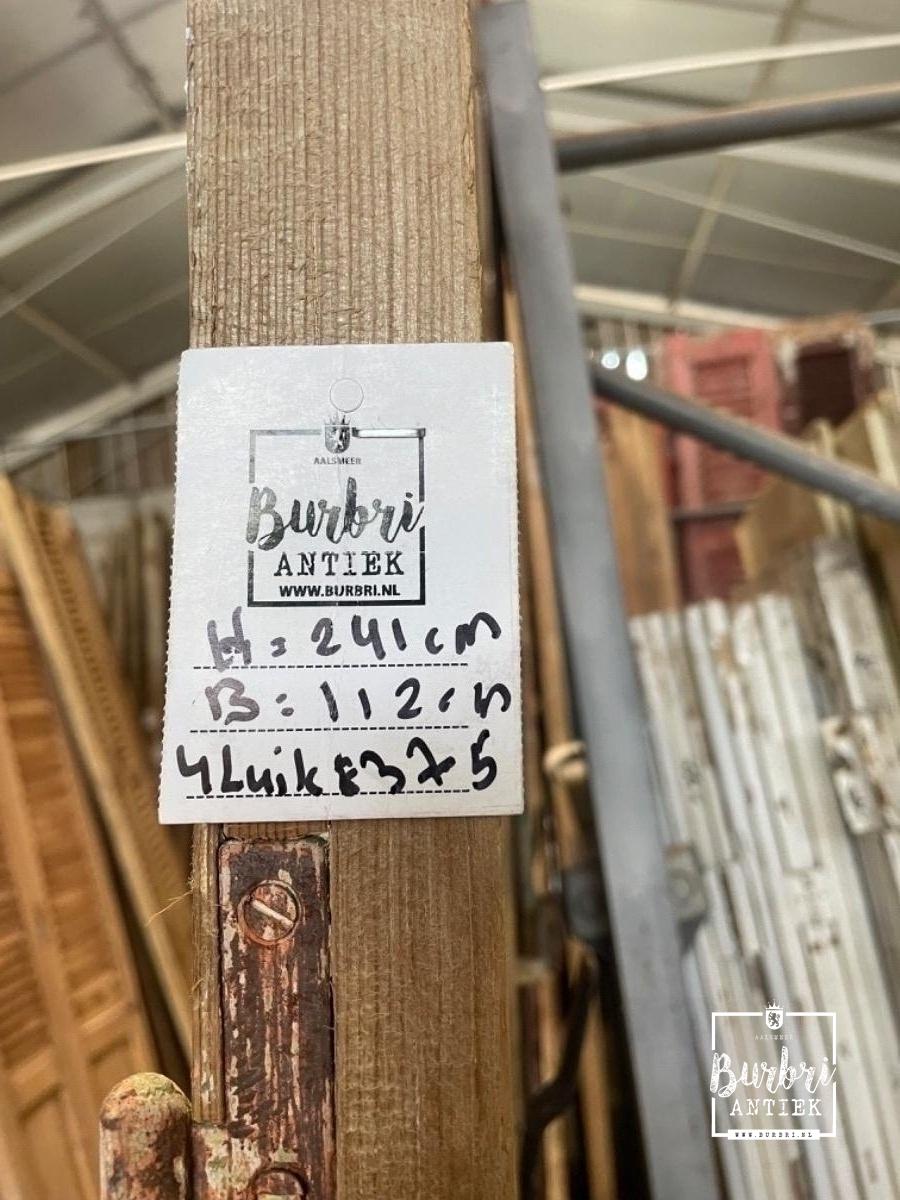 AALSMEER
Burbri
ANTIEK
WWW.BURBRI.NL
H = 241 cm
B = 112 cm
4 Luik €375
AALSMEER
Burbri
ANTIEK
WWW.BURBRI.NL